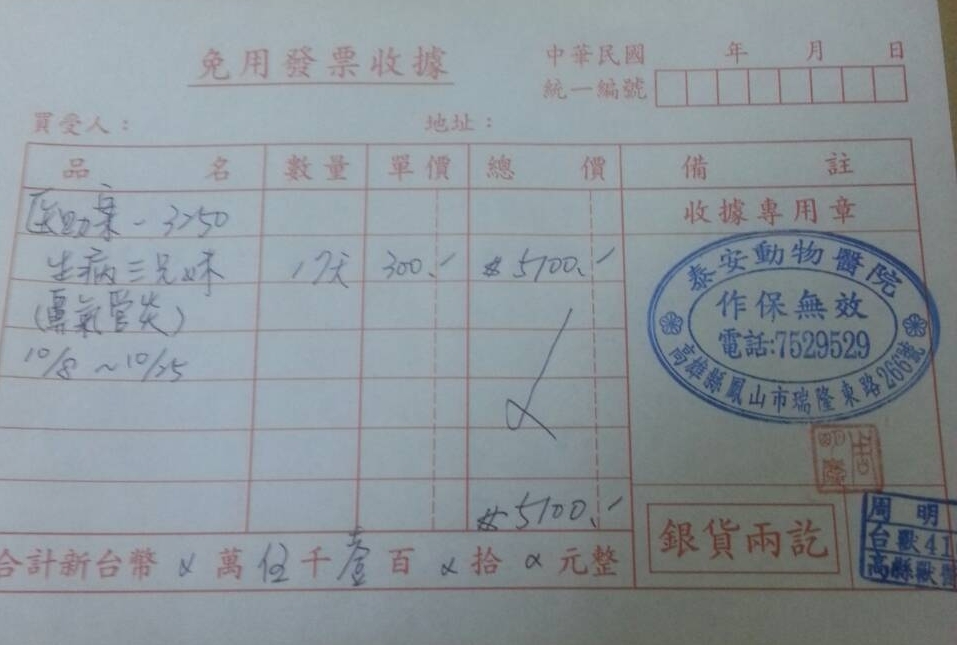 免用發票收據
中華民國 年 月 日
統一編號
買受人：
地址：
品名 數量 單價 總價 備註
医助案-3250
收據專用章
生病三兄妹 17天 300.- $5100.-
(鼻氣管炎)
10/8 ~ 10/25
泰安動物醫院
作保無效
電話:7529529
高雄縣鳳山市瑞隆東路266號
周明隆
$5100.-
銀貨兩訖
周明
台獸41
高縣獸醫
合計新台幣 萬 伍 千 壹 百 拾 元整